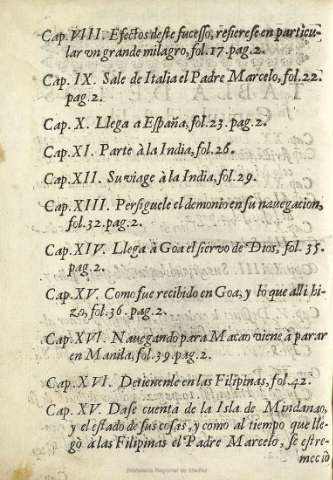 Cap. VIII. Efectos deste sucesso, refierese en particu-
lar vn grande milagro, fol. 17. pag. 2.
Cap. IX. Sale de Italia el Padre Marcelo, fol. 22.
pag. 2.
Cap. X. Llega a España, fol. 23. pag. 2.
Cap. XI. Parte à la India, fol. 26.
Cap. XII. Su viage à la India, fol. 29.
Cap. XIII. Persiguele el demonio en su nauegacion,
fol. 32. pag. 2.
Cap. XIV. Llega à Goa el siervo de Dios, fol. 35.
pag. 2.
Cap. XV. Como fue recibido en Goa, y lo que alli hi-
zo, fol. 36. pag. 2.
Cap. XVI. Nauegando para Macao viene à parar
en Manila, fol. 39. pag. 2.
Cap. XVI. Detienenle en las Filipinas, fol. 42.
Cap. XV. Dase cuenta de la Isla de Mindanao,
y el estado de sus cosas, y como al tiempo que lle-
gò à las Filipinas el Padre Marcelo, se estre-
meciò
Biblioteca Regional de Madrid